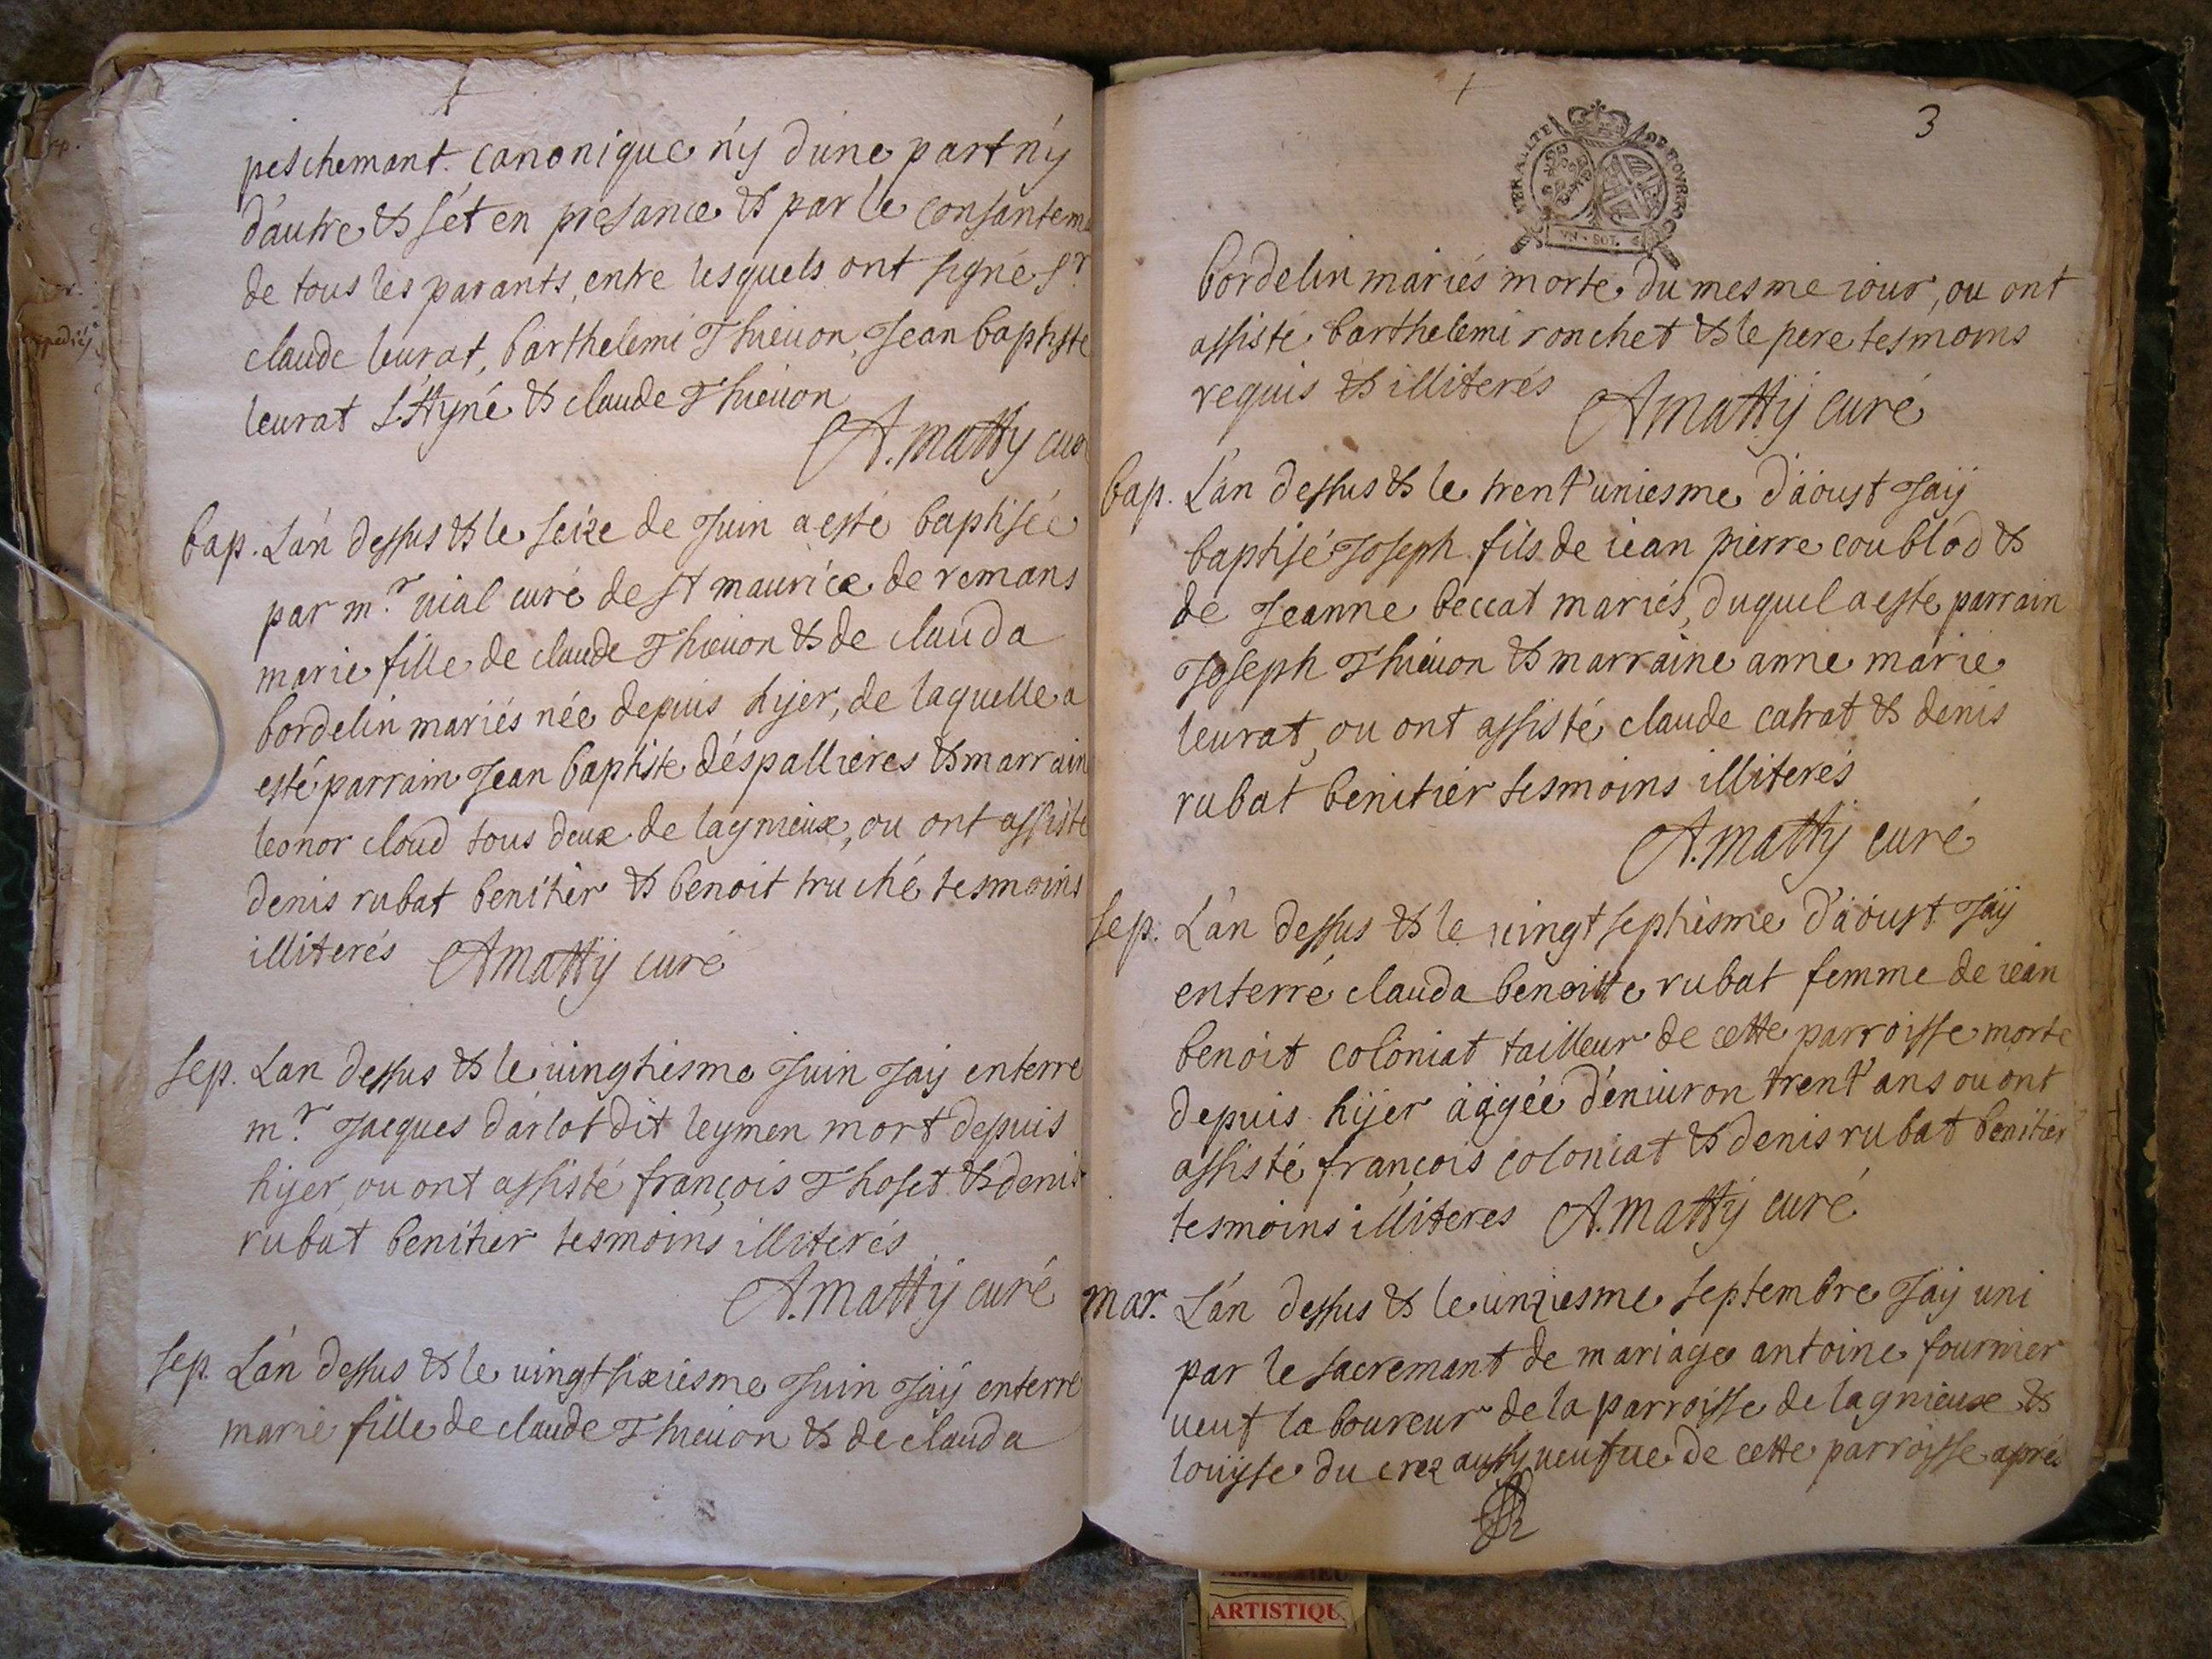 peschemant canonique n'y d'une part n'y
d'autre & s'ét en presance & par le consanteme
de tous les parants, entre lesquels ont signé Sr
claude leurat, barthelemi Thieuon, Jean baptiste
leurat & claude Thieuon
A. Matty curé
bap. L'an dessus & le seize de Juin a esté baptisée
par mr. uial curé de st maurice de remans
marie fille de claude Thieuon & de clauda
bordelin mariés née depuis hijer, de laquelle a
esté parrain Jean baptiste déspallieres & marrain
leonor cloud tous deux de lagnieux, ou ont assisté
denis rubat benitier & benoit truché tesmoins
illiterés A Matty curé
sep. L'an dessus & le uingtiesme Juin J'aij enterré
mr. Jacques d'arlot dit leymen mort depuis
hijer, ou ont assisté françois Thoset & denis
rubat benitier tesmoins illiterés
A. Matty curé
sep. L'an dessus & le uingt sixiesme Juin J'aij enterré
marie fille de claude Thieuon & de clauda
3
GENERALITE DE BOURGOGNE
UN SOL
bordelin mariés morte du mesme iour, ou ont
assisté barthelemi ronchet & le pere tesmoins
requis & illiterés A Matty curé
bap. L'an dessus & le trent'uniesme d'aoust J'aij
baptisé Joseph fils de iean pierre coublod &
de Jeanne beccat mariés, duquel a esté parrain
Joseph Thieuon & marraine anne marie
leurat, ou ont assisté claude catrat & denis
rubat benitier tesmoins illiterés
A. Matty curé
sep. L'an dessus & le uingt septiesme d'aoust J'aij
enterré clauda benoitte rubat femme de iean
benoit coloniat tailleur de cette parroisse morte
depuis hijer aagée d'enuiron trent'ans ou ont
assisté françois coloniat & denis rubat benitier
tesmoins illiteres A. Matty curé
mar. L'an dessus & le unziesme septembre J'aij uni
par le sacremant de mariage antoine fournier
ueuf laboureur de la parroisse de lagnieux &
louijse du crez aussy ueufue de cette parroisse aprés
ARTISTIQU